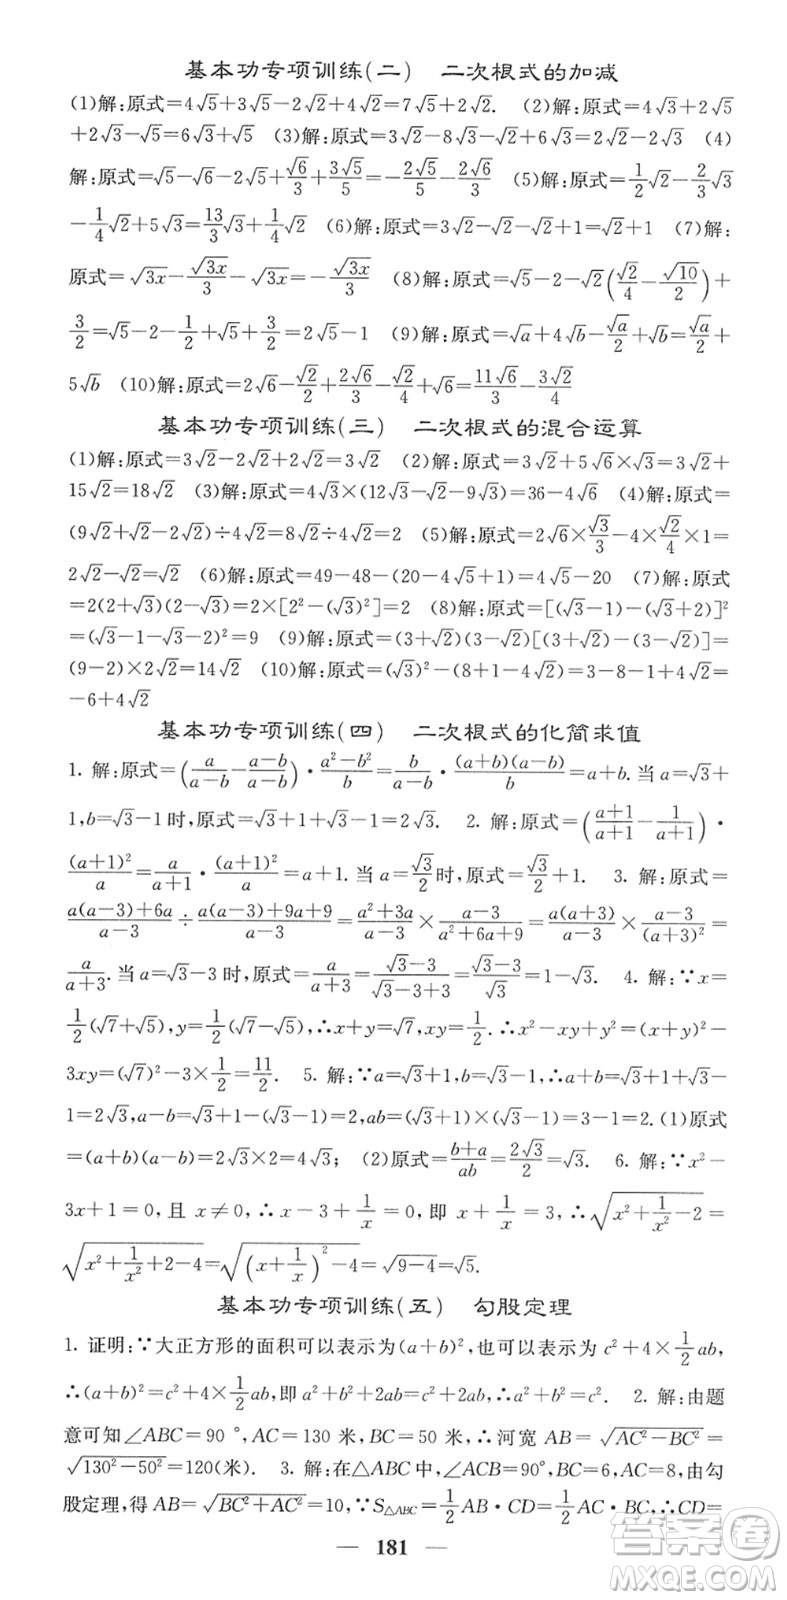 基本功专项训练(二)　二次根式的加减
(1)解:原式=4√5+3√5-2√2+4√2=7√5+2√2.　(2)解:原式=4√3+2√5
+2√3-√5=6√3+√5　(3)解:原式=3√2-8√3-√2+6√3=2√2-2√3　(4)
解:原式=√5-√6-2√5+√6/3+3√5/5=-2√5/5-2√6/3　(5)解:原式=1/2√2-2/3√3
-1/4√2+5√3=13/3√3+1/4√2　(6)解:原式=3√2-√2-√2+1=√2+1　(7)解:
原式=√3x-√3x/3-√3x=-√3x/3　(8)解:原式=√5-2-√2(√2/4-√10/2)+
3/2=√5-2-1/2+√5+3/2=2√5-1　(9)解:原式=√a+4√b-√a/2+√b=√a/2+
5√b　(10)解:原式=2√6-√2/2+2√6/3-√2/4+√6=11√6/3-3√2/4
基本功专项训练(三)　二次根式的混合运算
(1)解:原式=3√2-2√2+2√2=3√2　(2)解:原式=3√2+5√6×√3=3√2+
15√2=18√2　(3)解:原式=4√3×(12√3-√2-9√3)=36-4√6　(4)解:原式=
(9√2+√2-2√2)÷4√2=8√2÷4√2=2　(5)解:原式=2√6×√3/3-4×√2/4×1=
2√2-√2=√2　(6)解:原式=49-48-(20-4√5+1)=4√5-20　(7)解:原式
=2(2+√3)(2-√3)=2×[2²-(√3)²]=2　(8)解:原式=[(√3-1)-(√3+2)]²
=(√3-1-√3-2)²=9　(9)解:原式=(3+√2)(3-√2)[(3+√2)-(3-√2)]=
(9-2)×2√2=14√2　(10)解:原式=(√3)²-(8+1-4√2)=3-8-1+4√2=
-6+4√2
基本功专项训练(四)　二次根式的化简求值
1. 解:原式=(a/(a-b)-(a-b)/(a-b))·(a²-b²)/b=b/(a-b)·(a+b)(a-b)/b=a+b.当a=√3+
1,b=√3-1时,原式=√3+1+√3-1=2√3.　2. 解:原式=((a+1)/(a+1)-1/(a+1))·
(a+1)²/a=a/(a+1)·(a+1)²/a=a+1.当a=√3/2时,原式=√3/2+1.　3. 解:原式=
(a(a-3)+6a)/(a-3)÷(a(a-3)+9a+9)/(a-3)=(a²+3a)/(a-3)×(a-3)/(a²+6a+9)=a(a+3)/(a-3)×(a-3)/(a+3)²=
a/(a+3).当a=√3-3时,原式=a/(a+3)=(√3-3)/(√3-3+3)=(√3-3)/√3=1-√3.　4. 解:∵x=
1/2(√7+√5),y=1/2(√7-√5),∴x+y=√7,xy=1/2.∴x²-xy+y²=(x+y)²-
3xy=(√7)²-3×1/2=11/2.　5. 解:∵a=√3+1,b=√3-1,∴a+b=√3+1+√3-
1=2√3,a-b=√3+1-(√3-1)=2,ab=(√3+1)×(√3-1)=3-1=2.(1)原式
=(a+b)(a-b)=2√3×2=4√3；(2)原式=(b+a)/ab=2√3/2=√3.　6. 解:∵x²-
3x+1=0,且x≠0,∴x-3+1/x=0,即x+1/x=3,∴√(x²+1/x²-2)=
√(x²+1/x²+2-4)=√((x+1/x)²-4)=√(9-4)=√5.
基本功专项训练(五)　勾股定理
1. 证明:∵大正方形的面积可以表示为(a+b)²,也可以表示为c²+4×1/2ab,
∴(a+b)²=c²+4×1/2ab,即a²+b²+2ab=c²+2ab,∴a²+b²=c².　2. 解:由题
意可知∠ABC=90°,AC=130米,BC=50米,∴河宽AB=√(AC²-BC²)=
√(130²-50²)=120(米).　3. 解:在△ABC中,∠ACB=90°,由勾
股定理,得AB=√(BC²+AC²)=10,∵S△ABC=1/2AB·CD=1/2AC·BC,∴CD=
— 181 —
答案圈
MXQE.COM